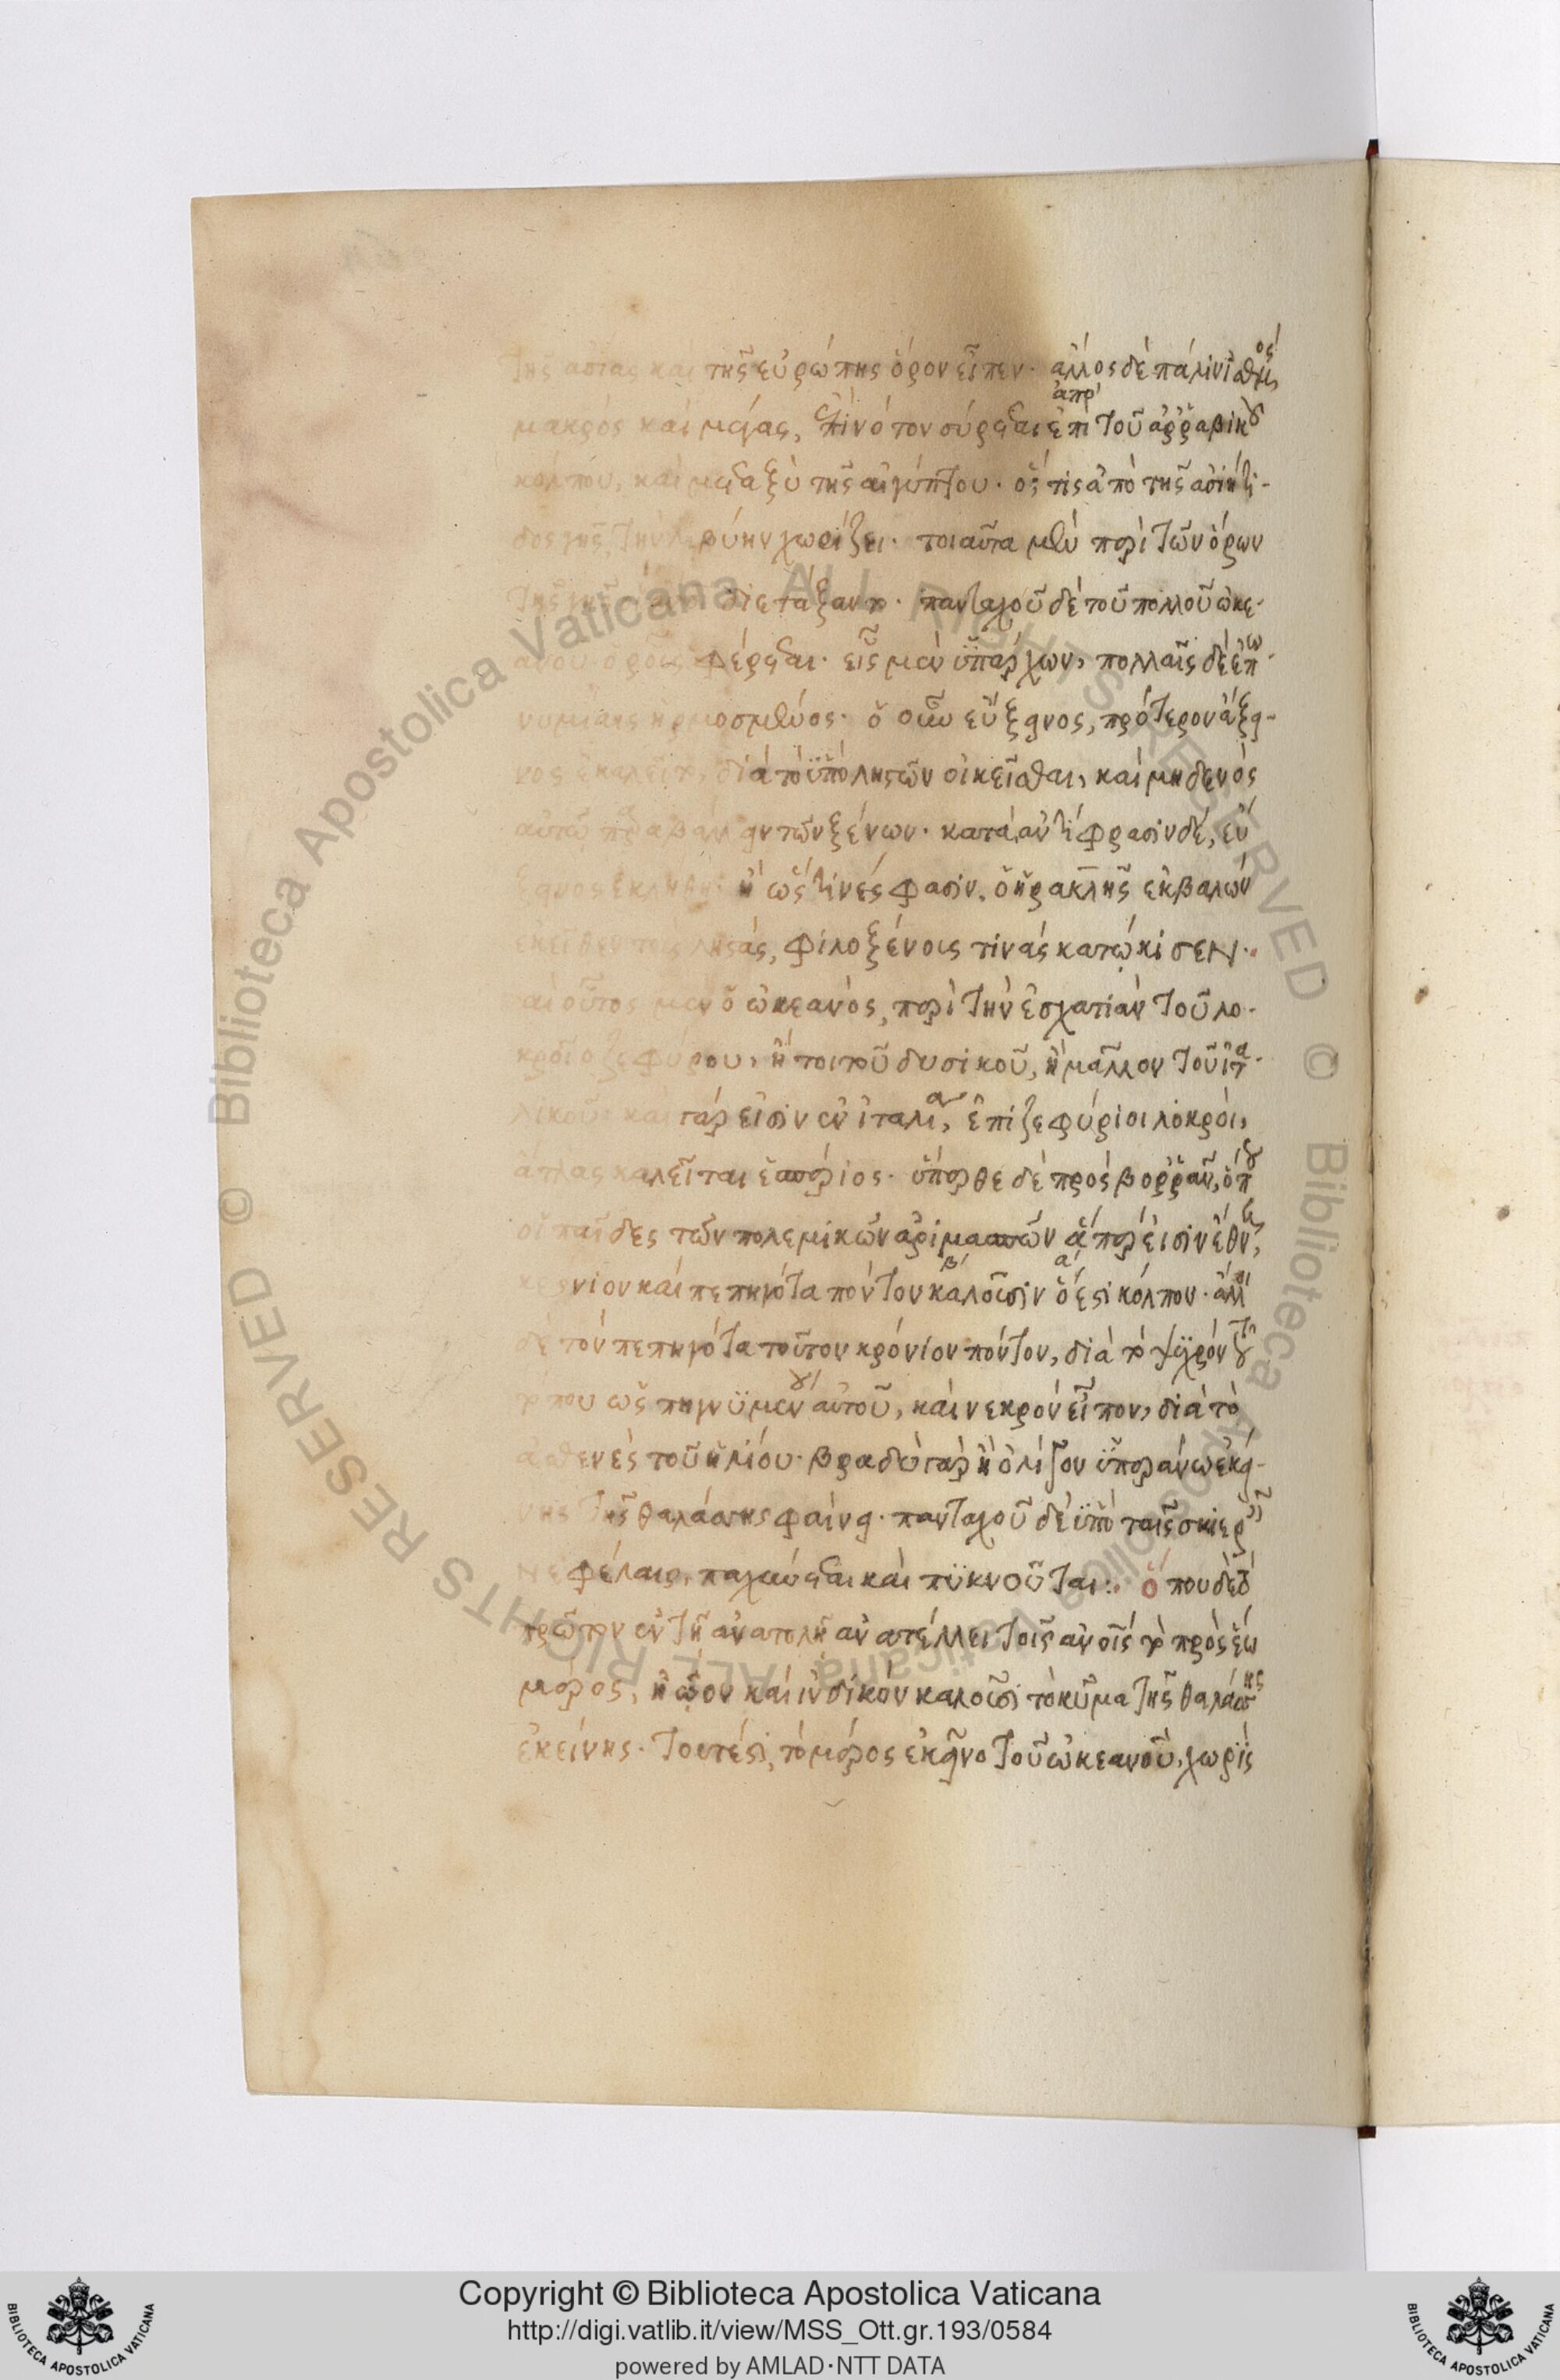 τῆς ἀσίας καὶ τῆς εὐρώπης ὅρον εἶπεν· ἄλλος δὲ πάλιν ἰσθμός,
μακρὸς καὶ μέγας, ἐστὶν ὁ σύρεται ἐπὶ τοῦ ἀρραβικοῦ
κόλπου, καὶ μεταξὺ τῆς αἰγύπτου· ὅς τις ἀπὸ τῆς ἀσιήτι-
δος γῆς, τὴν λιβύην χωρίζει· τοιαῦτα μὲν περὶ τῶν ὅρων
τῆς γῆς διετάξαντο· πανταχοῦ δὲ τοῦ πολλοῦ ὠκε-
ανοῦ φέρεται· εἷς μὲν ὑπάρχων, πολλαῖς δὲ ἐπω-
νυμίαις ἡρμοσμένος· ὁ οὖν εὔξεινος, πρότερον ἄξει-
νος ἐκαλεῖτο, διὰ τὸ ὑπὸ ληστῶν οἰκεῖσθαι, καὶ μηδενὸς
αὐτῶ τῶν ξένων· κατὰ ἀντίφρασιν δὲ, εὔ
ξεινος ἐκλήθη· ἢ ὥς τινές φασιν, ὁ ἡρακλῆς ἐκβαλὼν
ἐκεῖθεν τοὺς ληστάς, φιλοξένοις τινὰς κατῴκισεν·
οὗτος μὲν ὁ ὠκεανὸς, περὶ τὴν ἐσχατιὰν τοῦ λο-
κροῖο ζεφύρου, ἤτοι τοῦ δυσικοῦ, ἢ μᾶλλον τοῦ ἰτα-
λικοῦ· καὶ γάρ εἰσιν ἐν ἰταλία, ἐπιζεφύριοι λοκροί,
ἄτλας καλεῖται ἑσπέριος· ὕπερθε δὲ πρὸς βορρᾶν, ὅπου
οἱ παῖδες τῶν πολεμικῶν ἀριμασπῶν ἅπερ εἰσὶν ἔθνη,
κρόνιον καὶ πεπηγότα πόντον καλοῦσιν ὅ ἐστι κόλπον· ἄλλοι
δὲ τὸν πεπηγότα τοῦτον κρόνιον πόντον, διὰ τὸ ψυχρὸν τοῦ
τόπου ὡς πηγνυμένου αὐτοῦ, καὶ νεκρὸν εἶπον, διὰ τὸ
ἀσθενὲς τοῦ ἡλίου· βραδὺ γὰρ ἢ ὀλίγον ὑπεράνω ἐκεί-
νης τῆς θαλάσσης φαίνει· πανταχοῦ δὲ ὑπὸ ταῖς σκιεραῖς
νεφέλαις, παχύνεται καὶ πυκνοῦται· ὅπου δὲ
πρῶτον ἐν τῇ ἀνατολῇ ἀνατέλλει τοῖς ἀνοῖς τὸ πρὸς ἕω
μέρος, ἠῷον καὶ ἰνδικὸν καλοῦσι τὸ κῦμα τῆς θαλάσσης
ἐκείνης· τουτέστι, τὸ μέρος ἐκεῖνο τοῦ ὠκεανοῦ, χωρὶς
Copyright © Biblioteca Apostolica Vaticana
http://digi.vatlib.it/view/MSS_Ott.gr.193/0584
powered by AMLAD·NTT DATA
BIBLIOTECA APOSTOLICA VATICANA
BIBLIOTECA APOSTOLICA VATICANA
© Biblioteca Apostolica Vaticana ALL RIGHTS RESERVED
© Biblioteca Apostolica Vaticana ALL RIGHTS RESERVED